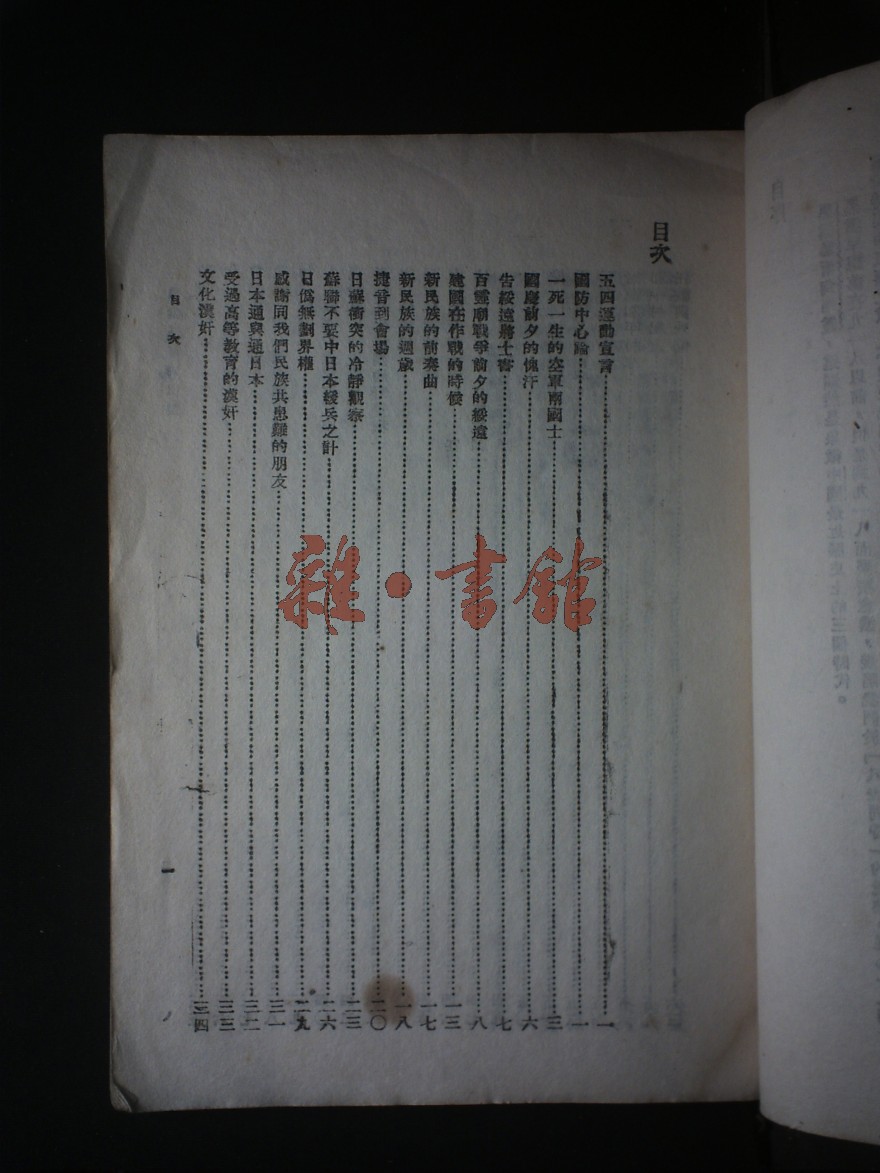 目次
五四運動宣言……一
國防中心論……一
一死一生的空軍兩國士……三
國慶前夕的愧汗……六
告綏遠將士書……七
百靈廟戰爭前夕的綏遠……八
建國在作戰的時候……一三
新民族的前奏曲……一七
新民族的週歲……一八
捷音到會場……二〇
日蘇衝突的冷靜觀察……二三
蘇聯不要中日本緩兵之計……二六
日僞無劃界權……二九
感謝同我們民族共患難的朋友……三一
日本通與通日本……三二
受過高等教育的漢奸……三三
文化漢奸……三四
目次
一
雜·書館